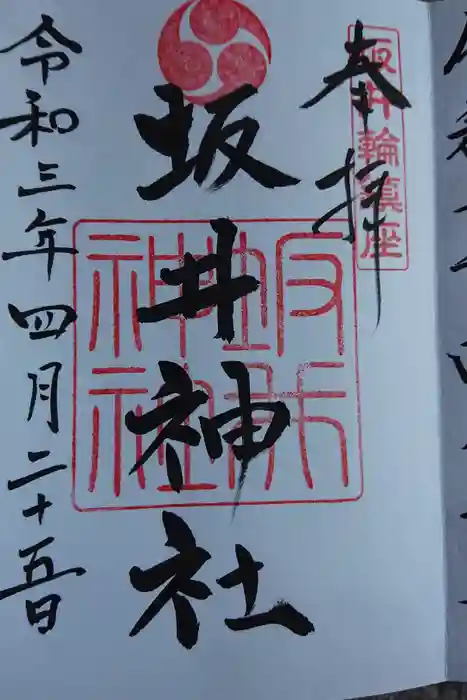 坂井輪鎮座
奉拝
坂井神社
令和三年四月二十五日